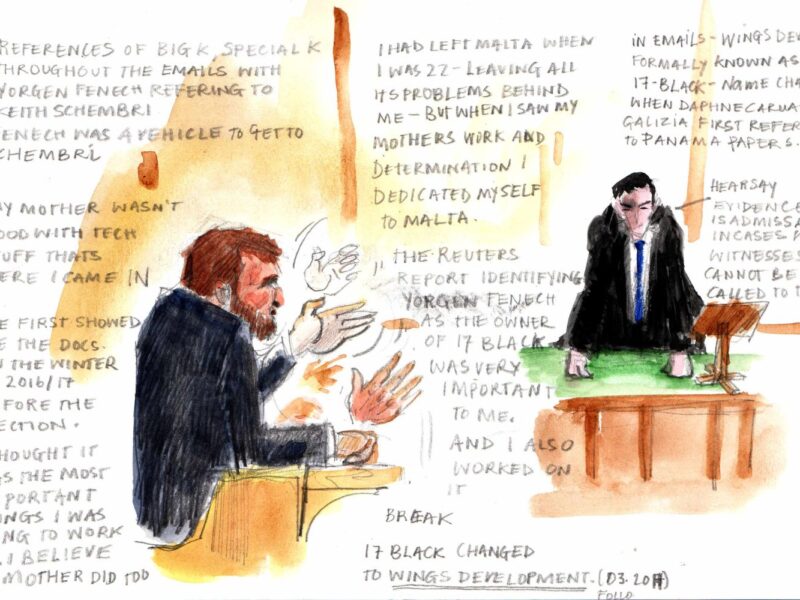 REFERENCES OF BIG K, SPECIAL K
THROUGHOUT THE EMAILS WITH
YORGEN FENECH REFERING TO
KEITH SCHEMBRI.
FENECH WAS A VEHICLE TO GET TO
SCHEMBRI
MY MOTHER WASN'T
GOOD WITH TECH
STUFF THATS
WHERE I CAME IN
FIRST SHOWED
THE DOCS.
IN THE WINTER
2016/17
BEFORE THE
ELECTION.
THOUGHT IT
WAS THE MOST
IMPORTANT
THINGS I WAS
GOING TO WORK
I BELIEVE
MOTHER DID TOO
I HAD LEFT MALTA WHEN
I WAS 22 - LEAVING ALL
ITS PROBLEMS BEHIND
ME - BUT WHEN I SAW MY
MOTHERS WORK AND
DETERMINATION I
DEDICATED MYSELF
TO MALTA.
" THE REUTERS
REPORT IDENTIFYING
YORGEN FENECH
AS THE OWNER
OF 17 BLACK
WAS VERY
IMPORTANT
TO ME.
AND I ALSO
WORKED ON
IT
BREAK
17 BLACK CHANGED
TO WINGS DEVELOPMENT. (03.2017)
IN EMAILS - WINGS DEV
FORMALLY KNOWN AS
17-BLACK - NAME CHA
WHEN DAPHNE CARUA
GALIZIA FIRST REFER
TO PANAMA PAPERS.
HEARSAY
EVIDENCE
IS ADMISSA
IN CASES
WITNESSES
CANNOT BE
CALLED TO T